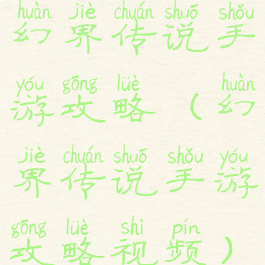 huàn jiè chuán shuō shǒu
幻界传说手
yóu gōng lüè huàn
游攻略(幻
jiè chuán shuō shǒu yóu
界传说手游
gōng lüè shì pín
攻略视频)